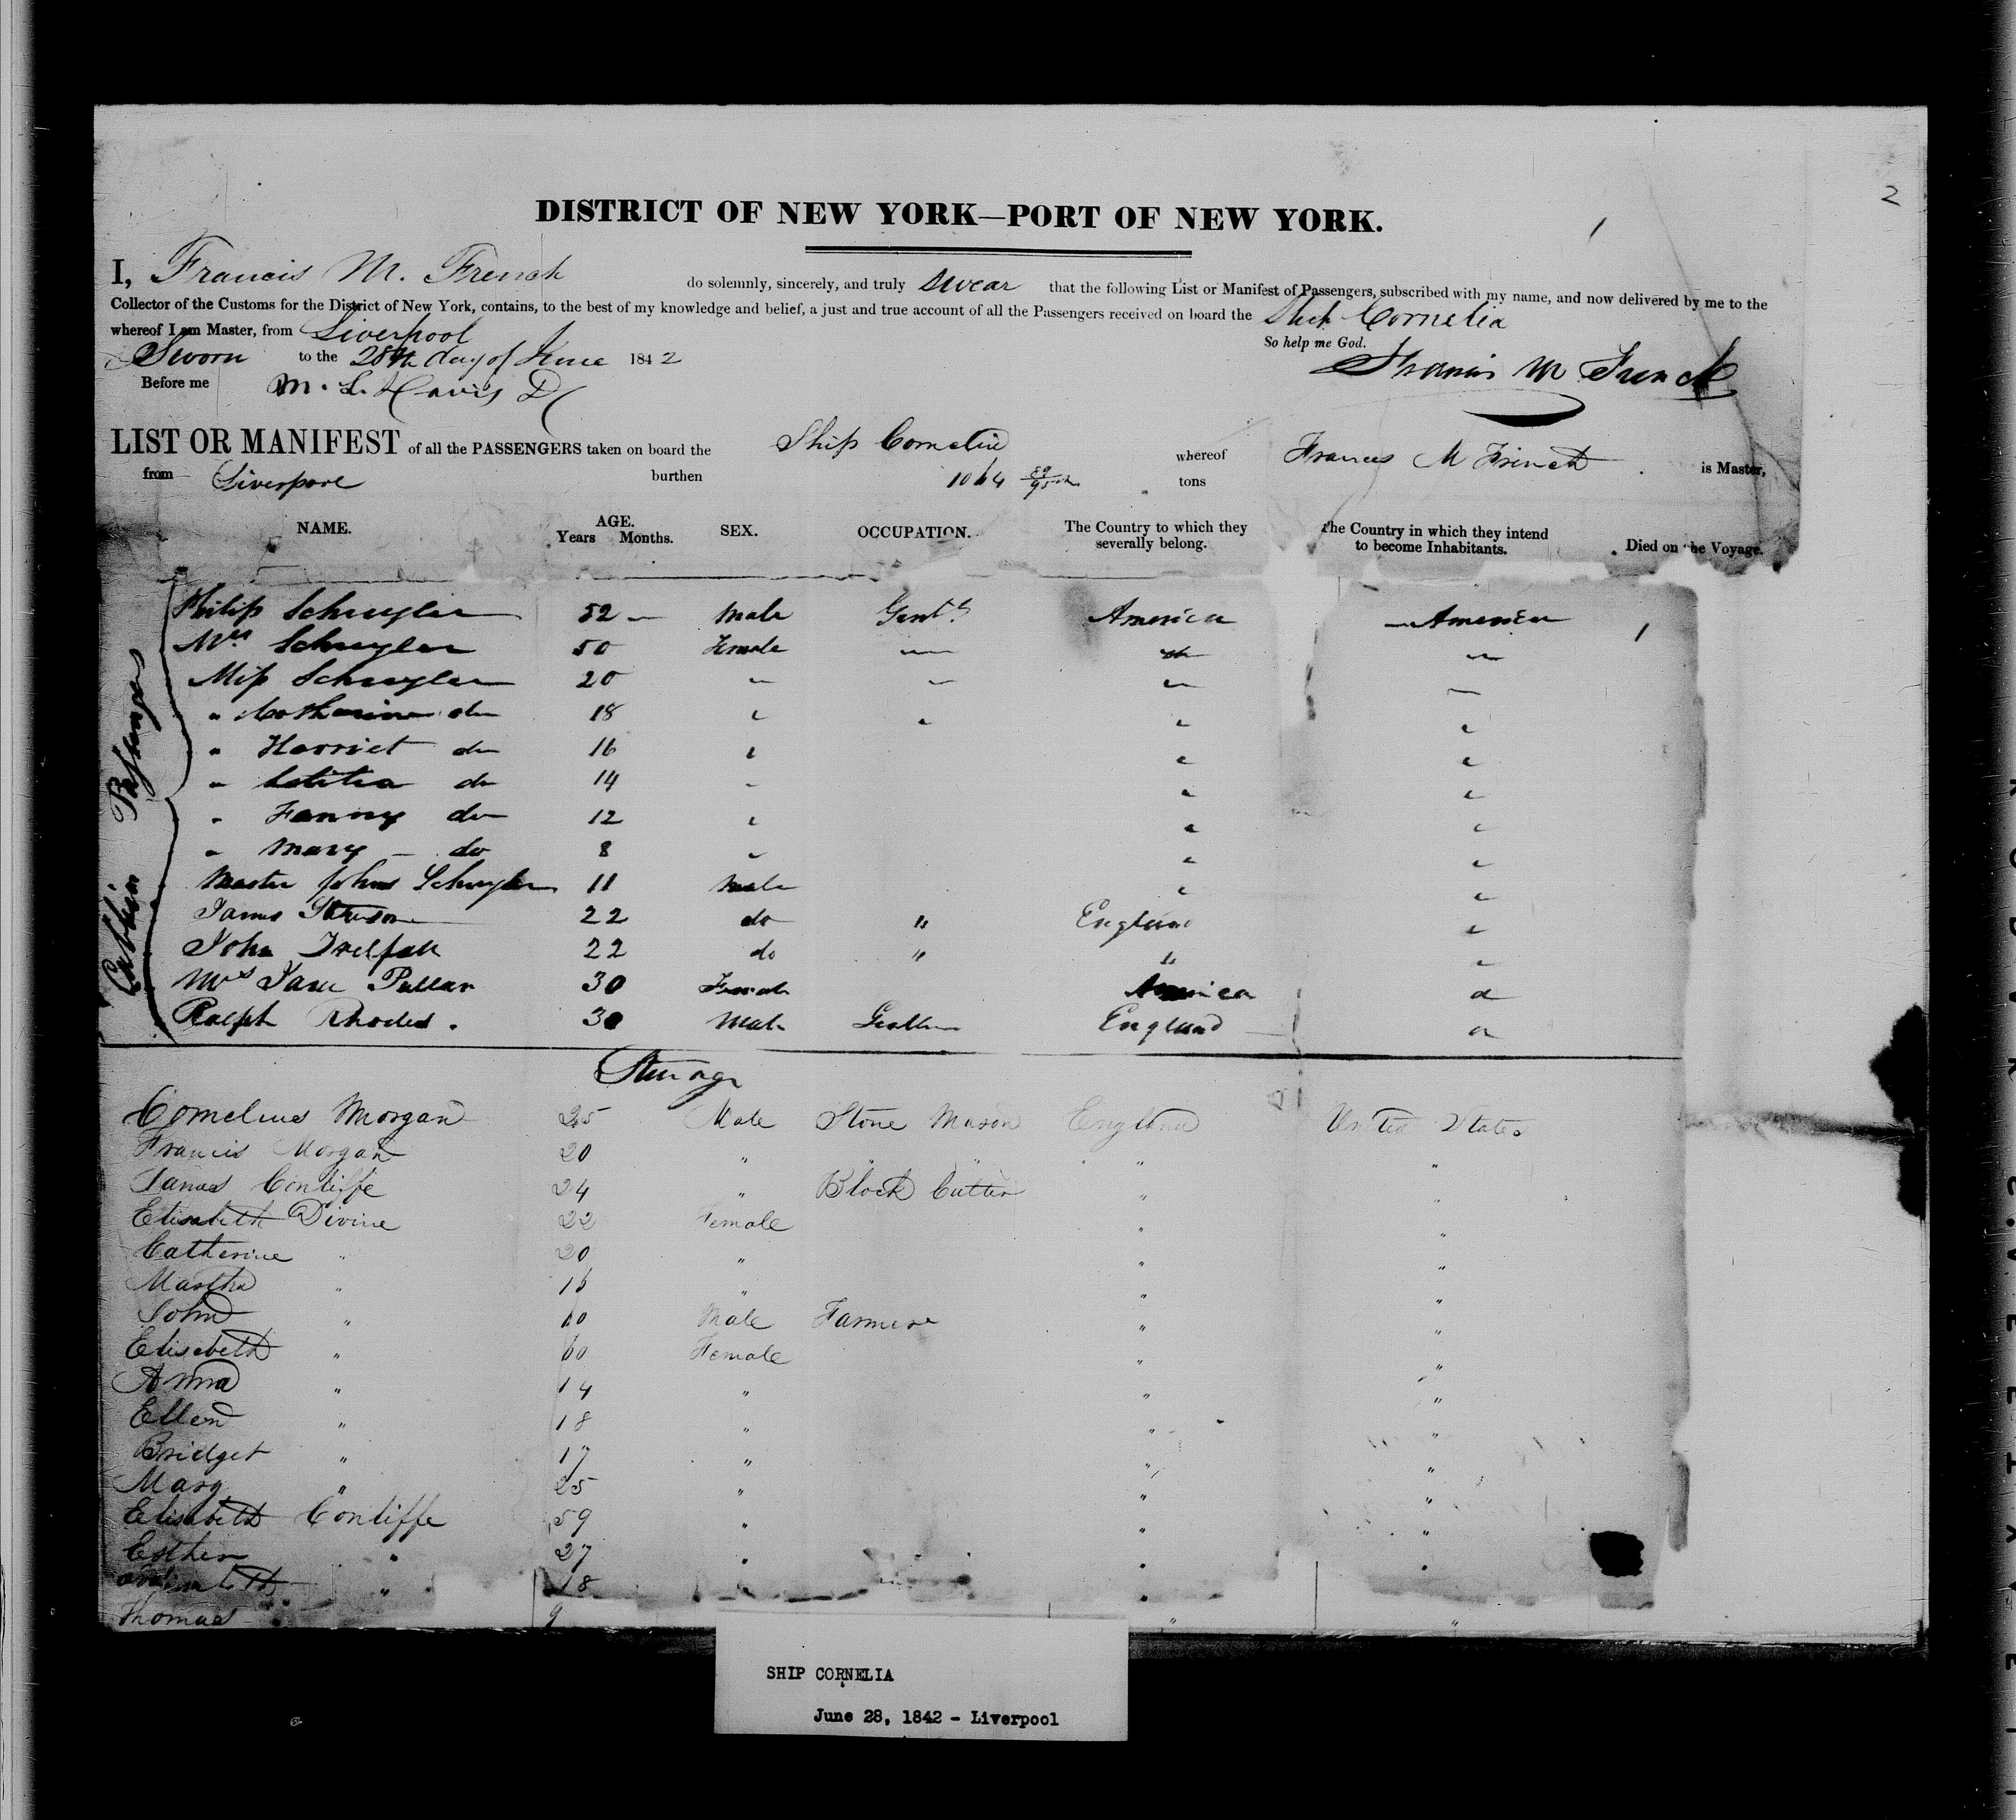 2
DISTRICT OF NEW YORK—PORT OF NEW YORK.
I, Francis M. French do solemnly, sincerely, and truly swear that the following List or Manifest of Passengers, subscribed with my name, and now delivered by me to the
Collector of the Customs for the District of New York, contains, to the best of my knowledge and belief, a just and true account of all the Passengers received on board the Ship Cornelia
whereof I am Master, from Liverpool
Sworn to the 28th day of June 1842 So help me God.
Before me M. L. Davis Francis M French
LIST OR MANIFEST of all the PASSENGERS taken on board the Ship Cornelia whereof Francis M French is Master,
from Liverpool burthen 1064 tons
NAME. AGE. Years Months. SEX. OCCUPATION. The Country to which they severally belong. The Country in which they intend to become Inhabitants. Died on the Voyage.
Cabbin Passengers
Philip Schuyler 52 — Male Gent. America — America
Mrs Schuyler 50 Female — " "
Miss Schuyler 20 " " " "
" Catharine do 18 " " " "
" Harriet do 16 " " "
" Letitia do 14 " " "
" Fanny do 12 " " "
" Mary — do 8 " " "
Master John Schuyler 11 Male " "
James 22 do " England "
John Trelfall 22 do " " "
Mrs Jane Pullar 30 Female America "
Ralph Rhodes. 30 Male England "
Steerage
Cornelius Morgan 25 Male Stone Mason England United States
Francis Morgan 20 " " " " "
James Conliffe 24 " Block Cutter " "
Elisabeth Divine 22 Female " "
Catherine " 20 " " "
Martha " 16 " " "
John " 60 Male Farmer " "
Elisabeth " 60 Female " "
Anna " 14 " " "
Ellen " 18 " " "
Bridget " 17 " " "
Mary " 25 " " "
Elisabeth Conliffe 59 " " "
Esther " 27 " " "
" 18 " "
Thomas " 9 " "
SHIP CORNELIA
June 28, 1842 - Liverpool